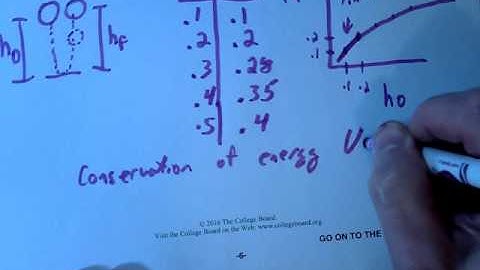 h0 hF
.1 .1
.2 .2
.3 .28
.4 .35
.5 .4
.2
.1
.1 .2
h0
Conservation of energy
© 2016 The College Board.
Visit the College Board on the Web: www.collegeboard.org.
GO ON TO THE
-6-